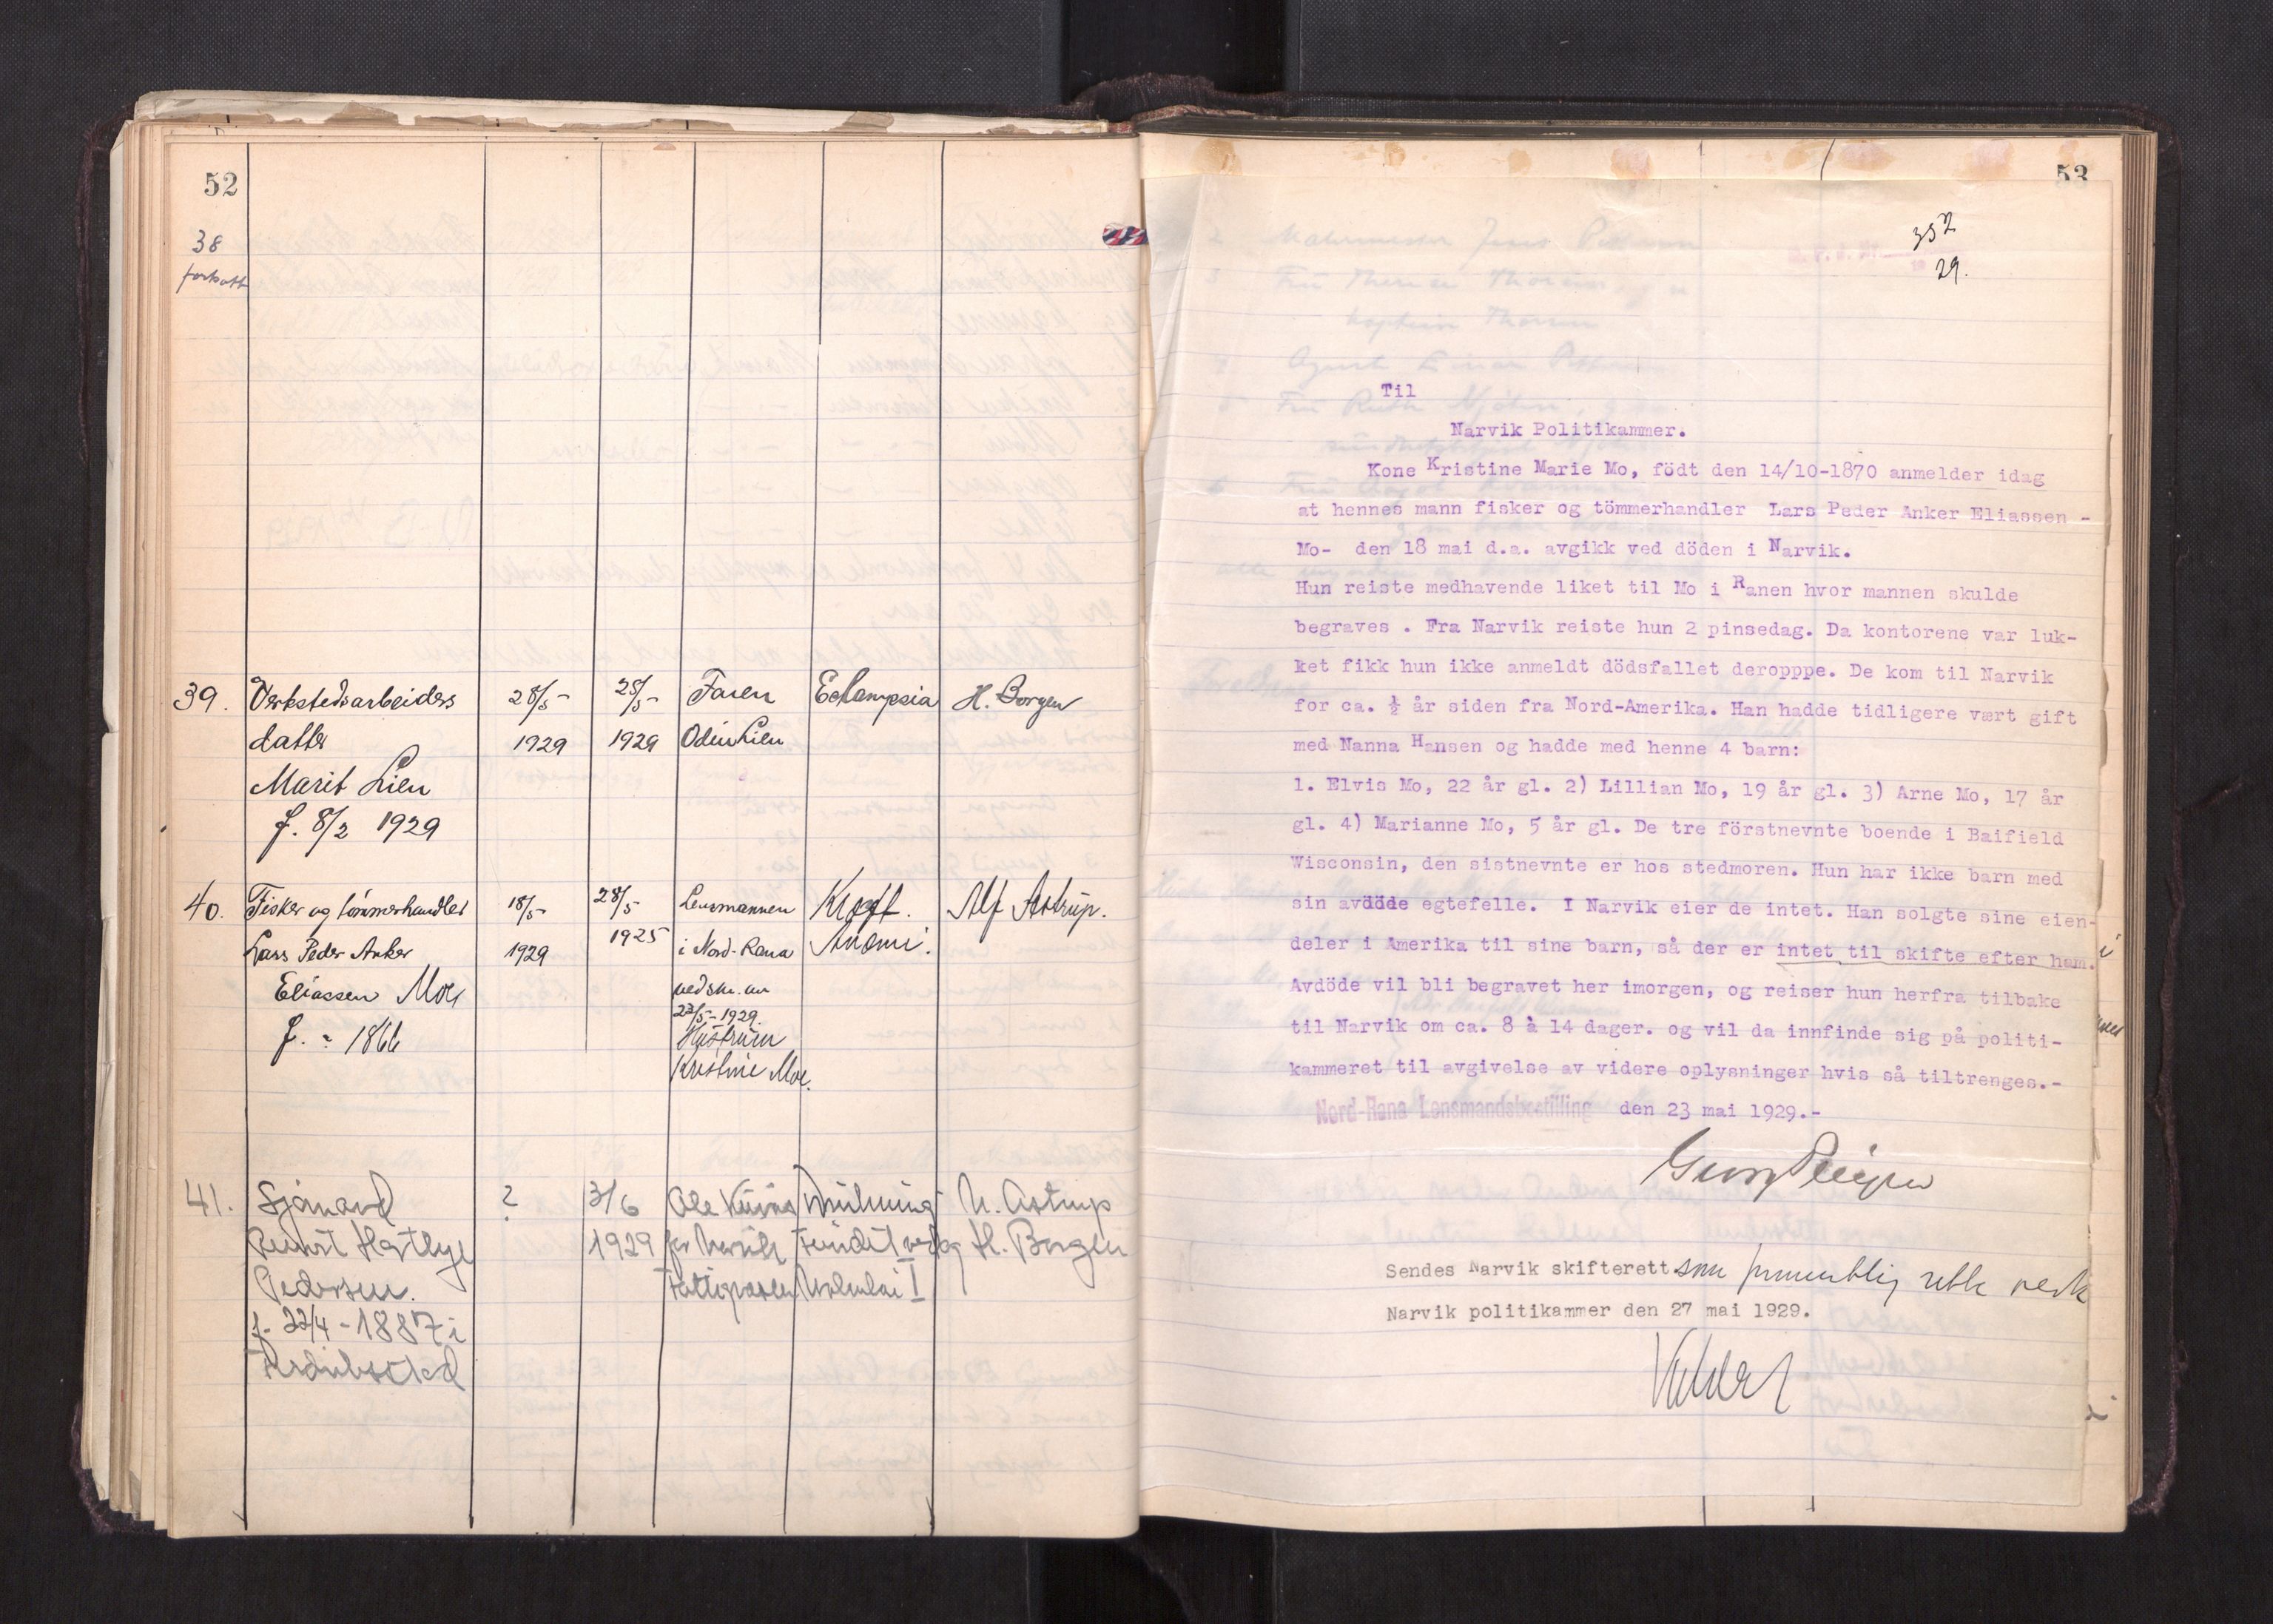 52
38
fortsatt
39. Verkstedsarbeiders 28/5- 28/5- Faren Eclampsia H. Borgen
datter 1929 1929 Odin Lien
Marit Lien
f. 8/2 1929
40. Fisker og tømmerhandler 18/5- 28/5 Lensmannen Kreft. Alf Astrup.
Lars Peder Anker 1929 1925 i Nord-Rana Anæmi.
Eliassen Moe
f. 1866
22/5-1929.
Hustruen
Kristine Moe.
41. Sjømand ? 3/6 Ole N. Astrup
Hartvig 1929 fundet ved og H. Borgen
Pedersen. I
f. 22/4-1887 i
53
352
29.
Til
Narvik Politikammer.
Kone Kristine Marie Mo, födt den 14/10-1870 anmelder idag
at hennes mann fisker og tömmerhandler Lars Peder Anker Eliassen -
Mo- den 18 mai d.a. avgikk ved döden i Narvik.
Hun reiste medhavende liket til Mo i Ranen hvor mannen skulde
begraves . Fra Narvik reiste hun 2 pinsedag. Da kontorene var luk-
ket fikk hun ikke anmeldt dödsfallet deropppe. De kom til Narvik
for ca. ½ år siden fra Nord-Amerika. Han hadde tidligere vært gift
med Nanna Hansen og hadde med henne 4 barn:
1. Elvis Mo, 22 år gl. 2) Lillian Mo, 19 år gl. 3) Arne Mo, 17 år
gl. 4) Marianne Mo, 5 år gl. De tre förstnevnte boende i Baifield
Wisconsin, den sistnevnte er hos stedmoren. Hun har ikke barn med
sin avdöde egtefelle. I Narvik eier de intet. Han solgte sine eien-
deler i Amerika til sine barn, så der er intet til skifte efter ham.
Avdöde vil bli begravet her imorgen, og reiser hun herfra tilbake
til Narvik om ca. 8 à 14 dager. og vil da innfinde sig på politi-
kammeret til avgivelse av videre oplysninger hvis så tiltrenges.-
Nord-Rana Lensmandsbestilling den 23 mai 1929.-
Sendes Narvik skifterett som rette vedk
Narvik politikammer den 27 mai 1929.